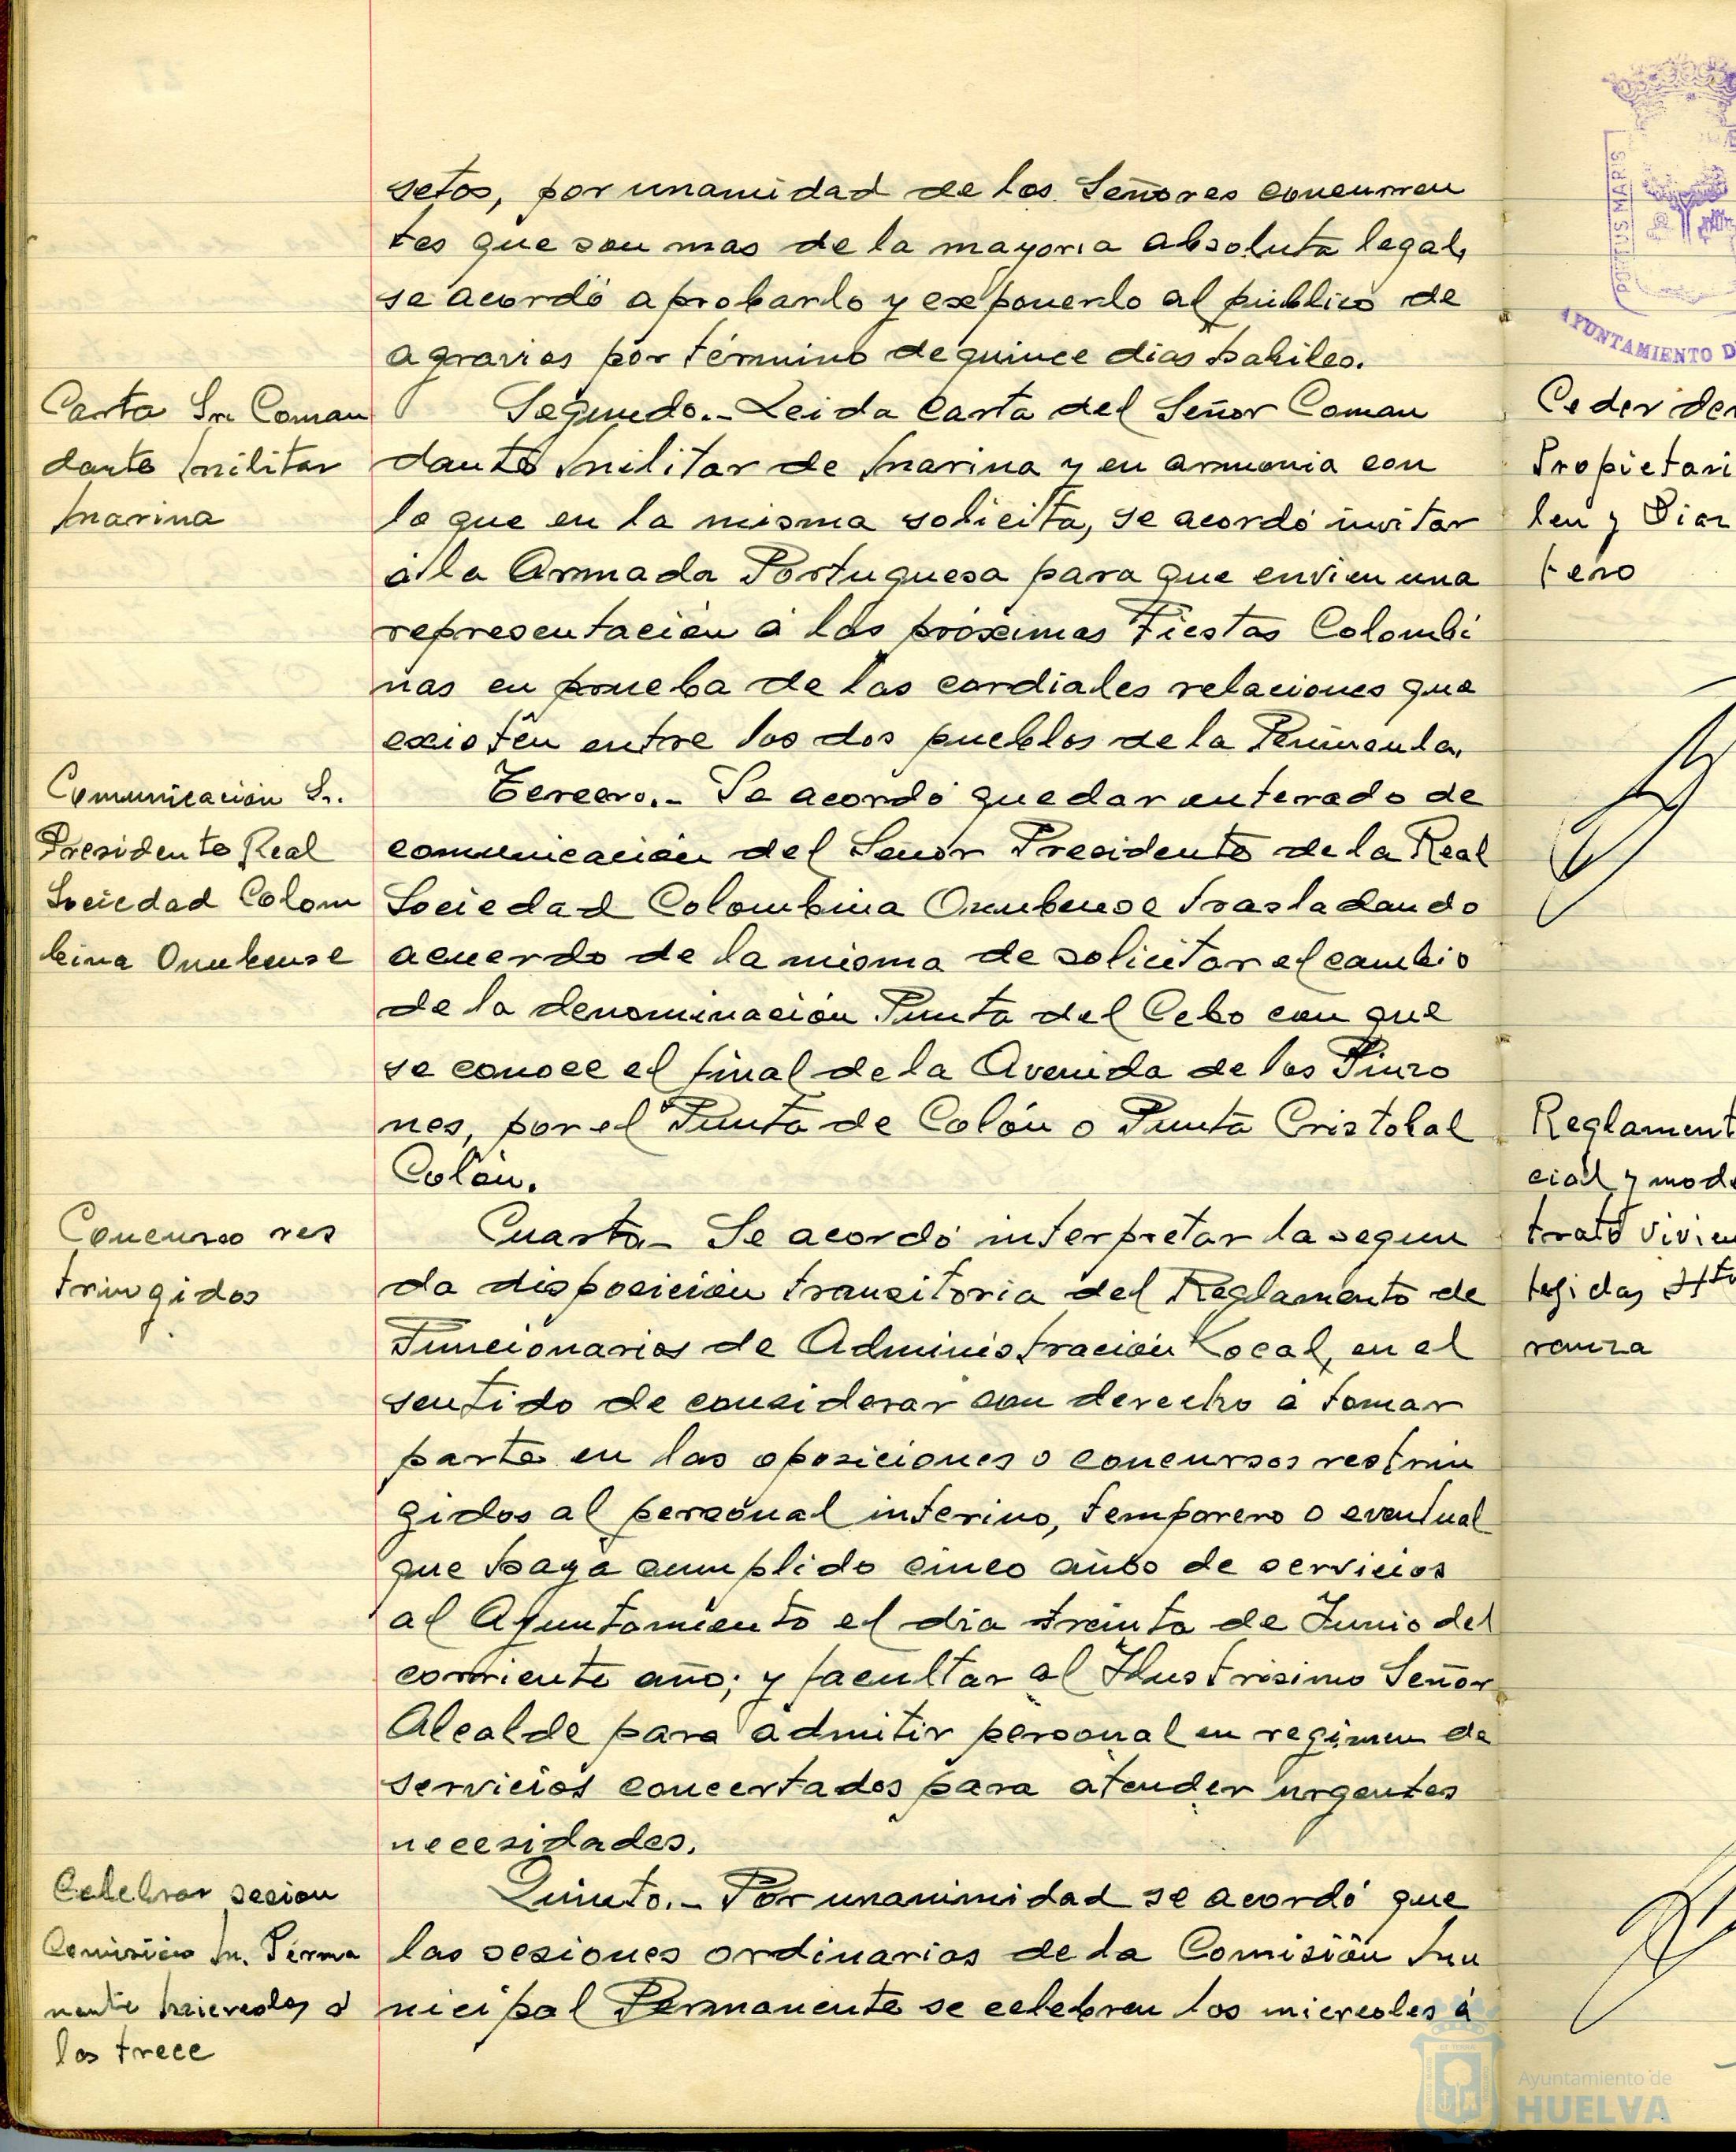 setos, por unamidad de los Señores concurren
tes que son mas de la mayoria absoluta legal,
se acordó aprobarlo y exponerlo al público de
agravios por término de quince dias habiles.
Carta Sr. Coman
dante Militar
Marina
Segundo.- Leida carta del Señor Coman
dante Militar de Marina y en armonia con
lo que en la misma solicita, se acordó invitar
á la Armada Portuguesa para que envien una
representación á las próximas Fiestas Colombi
nas en prueba de las cordiales relaciones que
existen entre los dos pueblos de la Peninsula.
Comunicación Sr.
Presidente Real
Sociedad Colom
bina Onubense
Tercero.- Se acordó quedar enterado de
comunicación del Señor Presidente de la Real
Sociedad Colombina Onubense trasladando
acuerdo de la misma de solicitar el cambio
de la denominación Punta del Cebo con que
se conoce el final de la Avenida de los Pinzo
nes, por el Punta de Colón o Punta Cristobal
Colón.
Concurso res
tringidos
Cuarto.- Se acordó interpretar la segun
da disposición transitoria del Reglamento de
Funcionarios de Administración Local, en el
sentido de considerar con derecho á tomar
parte en las oposiciones o concursos restrin
gidos al personal interino, temporero o eventual
que haya cumplido cinco años de servicios
al Ayuntamiento el dia treinta de Junio del
corriente año; y facultar al Ilustrisimo Señor
Alcalde para admitir personal en regimen de
servicios concertados para atender urgentes
necesidades.
Celebrar sesion
Comisión M. Perma
nente miercoles á
las trece
Quinto.- Por unanimidad se acordó que
las sesiones ordinarias de la Comisión Mu
nicipal Permanente se celebren los miercoles á
PORTUS MARIS
AYUNTAMIENTO D
Ceder der
Propietari
len y Diaz
tero
Reglament
cial y mode
trato vivien
tegidas
ranza
Ayuntamiento de
HUELVA